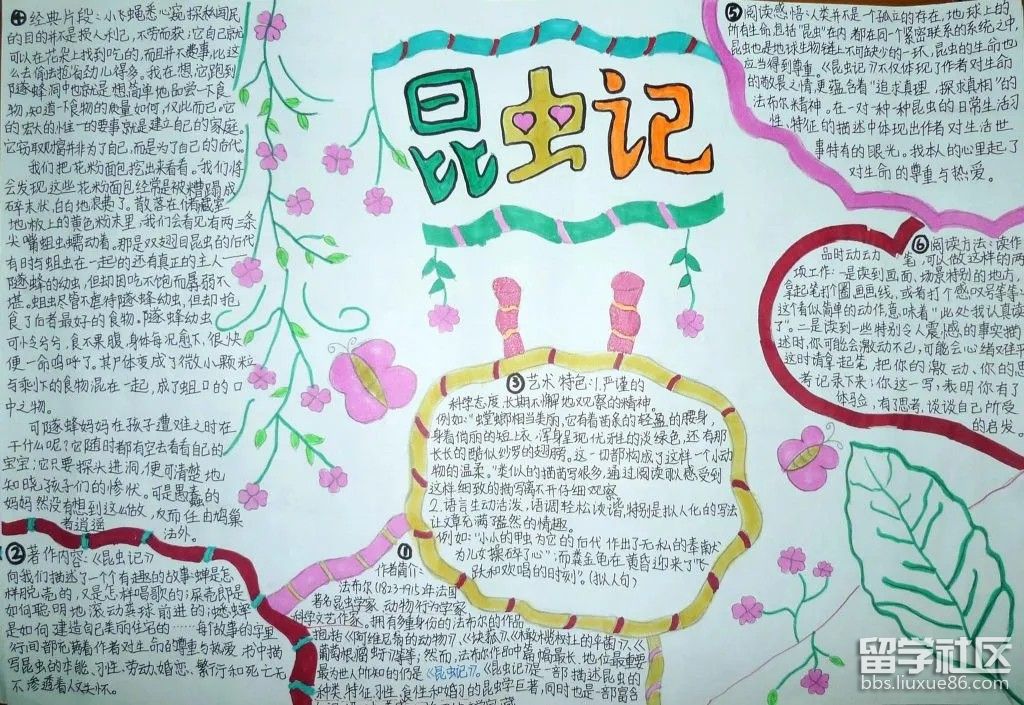 昆虫记
④经典片段:小飞蝇悉心窥探私闻民
的目的并不是损人利己,不劳而获;它自己既
可以在花朵上找到吃的,而且并不费事,比这
么去偷去抢省劲儿得多。我在想,它跑到
隧蜂洞中也就是想简单地品尝一下食
物,知道一下食物的质量如何,仅此而已。它
的宏大的惟一的要事就是建立自己的家庭。
它窃取财富并非为了自己,而是为了自己的后代。
我们把花粉面包挖出来看看。我们将
会发现这些花粉面包经常是被糟蹋成
碎末状,白白地浪费了。散落在储藏室
地板上的黄色粉末里,我们会看见有两三条
尖嘴蛆虫蠕动着。那是双翅目昆虫的后代
有时与蛆虫在一起的还有真正的主人——
隧蜂的幼虫,但却因吃不饱而孱弱不
堪。蛆虫尽管不虐待隧蜂幼虫,但却抢
食了后者最好的食物。隧蜂幼虫
可怜兮兮,食不果腹,身体每况愈下,很快
便一命呜呼了。其尸体变成了微小颗粒
与剩下的食物混在一起,成了蛆口的口
中之物。
可隧蜂妈妈在孩子遭难之时在
干什么呢?它随时都有空去看看自己的
宝宝;它只要探头进洞,便可清楚地
知晓孩子们的惨状。可是愚蠢的
妈妈然没有想到这么做,反而任由鸠巢
者逍遥法外。
②著作内容:《昆虫记》
向我们描述了一个个有趣的故事:蝉是怎
样脱壳的,又是怎样唱歌的;屎壳郎是
如何聪明地滚动粪球前进的;蟋蟀
是如何建造自己美丽住宅的……每个故事的字里
行间都充满着作者对生命的尊重与热爱。书中描
写昆虫的本能、习性、劳动、婚恋、繁衍和死亡无
不渗透着人文关怀。
①
作者简介:
法布尔(1823-1915)年法国
著名昆虫学家,动物行为学家
科学文艺作家。拥有多重身份的法布尔的作品
包括《阿维尼翁的动物》、《块菰》、《橄榄树上的伞菌》、《
葡萄根瘤蚜》等等;然而,法布尔作品中篇幅最长,地位最重要
最为世人所知的仍是《昆虫记》。《昆虫记》是一部描述昆虫的
种类、特征、习性、食性和婚习的昆虫学巨著,同时也是一部富含
③艺术特色:1.严谨的
科学态度,长期不懈地观察的精神。
例如:“螳螂相当美丽,它有着西象的轻盈的腰身,
身着俏丽的短上衣,浑身呈现优雅的淡绿色,还有那
长长的酷似纱罗的翅膀。这一切都构成了这样一个小动
物的温柔。”类似的描写很多,通过阅读可以感受到
这样细致的描写离不开仔细观察
2.语言生动活泼,语调轻松诙谐,特别是拟人化的写法
让文章充满了盎然的情趣。
例如:“小小的甲虫为它的后代作出了无私的奉献
为儿女操碎了心”;“而粪金龟在黄昏迎来了飞
跃和欢唱的时刻”。(拟人句)
⑤阅读感悟:人类并不是一个孤立的存在,地球上的
所有生命,包括“昆虫”在内,都在同一个紧密联系的系统之中,
昆虫也是地球生物链上不可缺少的一环,昆虫的生命也
应当得到尊重。《昆虫记》不仅体现了作者对生命
的敬畏之情,更蕴含着“追求真理,探求真相”的
法布尔精神。在一对一种一种昆虫的日常生活习
性、特征的描述中体现出作者对生活世
事特有的眼光。我本人的心里起了
对生命的尊重与热爱。
⑥阅读方法:读作
品时动动笔,可以做这样的两
项工作:一是读到画面、场景特别的地方,
拿起笔打个圈画画线,或者打个感叹号等等;
这个看似简单的动作,意味着“此处我认真读
了”。二是读到一些特别令人震感的事实描
述时,你可能会激动不已,可能会心绪难平
这时请拿起笔,把你的激动、你的思
考记录下来;你这一写,表明你有了
体验,有了思考,谈谈自己所受
的启发。
留学社区
bbs.liuxue86.com